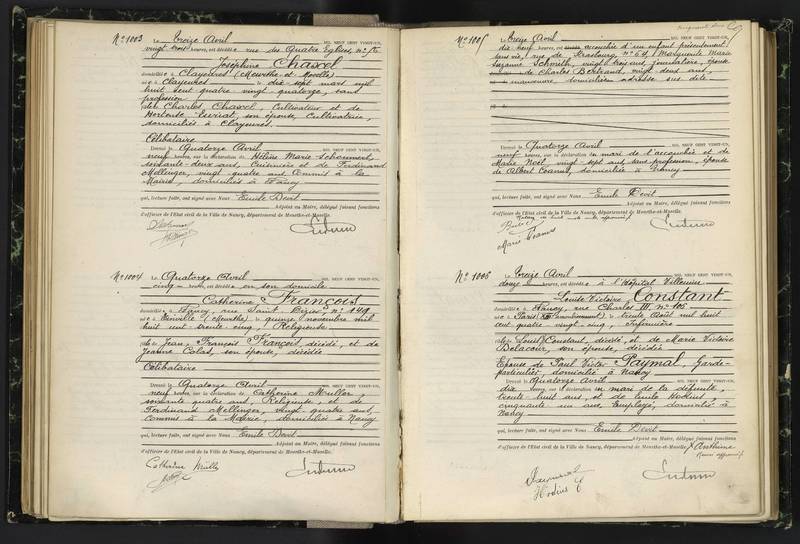 N° 1003 Le treize Avril MIL NEUF CENT VINGT-UN,
vingt trois heures, est décédée rue des Quatre Eglises, n°
Joséphine Chaxel
domiciliée à Clayeures (Meurthe et Moselle)
née à Clayeures le dix-sept mars mil
huit cent quatre vingt quatorze, sans
profession
fille de Charles Chaxel Cultivateur et de
Hortense son épouse, Cultivatrice,
domiciliés à Clayeures.
Célibataire
Dressé le Quatorze Avril MIL NEUF CENT VINGT-UN,
neuf heures, sur la déclaration de Hélène Marie
soixante-deux ans, et de Ferdinand
Mellinger, vingt quatre ans Commis à la
Mairie, domiciliés à Nancy
qui, lecture faite, ont signé avec Nous Emile Devit
Adjoint au Maire, délégué faisant fonctions
d'officier de l'Etat civil de la Ville de Nancy, département de Meurthe-et-Moselle.
N° 1004 Le Quatorze Avril MIL NEUF CENT VINGT-UN,
cinq heures, est décédée en son domicile
Catherine François
domiciliée à Nancy, rue Saint Dizier, n° 149
née à Einville (Meurthe) le quinze novembre mil
huit cent trente cinq, Religieuse
fille de Jean, François François, décédé, et de
Jeanne Colas, son épouse, décédée
Célibataire
Dressé le Quatorze Avril MIL NEUF CENT VINGT-UN,
neuf heures, sur la déclaration de Catherine Muller,
soixante quatre ans, Religieuse, et de
Ferdinand Mellinger, vingt quatre ans,
Commis à la Mairie, domiciliés à Nancy
qui, lecture faite, ont signé avec Nous Emile Devit
Adjoint au Maire, délégué faisant fonctions
d'officier de l'Etat civil de la Ville de Nancy, département de Meurthe-et-Moselle.
Catherine Müller
N° 1005 Le treize Avril MIL NEUF CENT VINGT-UN,
dix neuf heures, est accouchée d'un enfant présentement
sans vie, rue de Strasbourg n° Marguerite Marie
Suzanne Schmith, vingt trois ans, journalière, épouse
de Charles Bertrand, vingt deux ans,
manoeuvre, domiciliés adresse sus dite
Dressé le Quatorze Avril MIL NEUF CENT VINGT-UN,
neuf heures, sur la déclaration du mari de l'accouchée et de
Marie Noël, vingt sept ans, sans profession, épouse
de Albert domiciliée à Nancy
qui, lecture faite, ont signé avec Nous Emile Devit
Adjoint au Maire, délégué faisant fonctions
d'officier de l'Etat civil de la Ville de Nancy, département de Meurthe-et-Moselle.
Marie
N° 1006 Le treize Avril MIL NEUF CENT VINGT-UN,
douze heures, est décédée à l'Hôpital Villemin
Louise Victoire Constant
domiciliée à Nancy, rue Charles III, n° 105
née à Paris le trente Août mil huit
cent quatre vingt-cinq, infirmière
fille de Louis Constant, décédé, et de Marie Victoire
Delacour, son épouse, décédée
Epouse de Paul Victor Paymal, Garde-
particulier, domicilié à Nancy
Dressé le Quatorze Avril MIL NEUF CENT VINGT-UN,
dix heures, sur la déclaration du mari de la défunte,
trente huit ans, et de Emile Hodius
cinquante un ans, Employé, domicilié à
Nancy
qui, lecture faite, ont signé avec Nous Emile Devit
Adjoint au Maire, délégué faisant fonctions
d'officier de l'Etat civil de la Ville de Nancy, département de Meurthe-et-Moselle.
Paymal
Hodius E